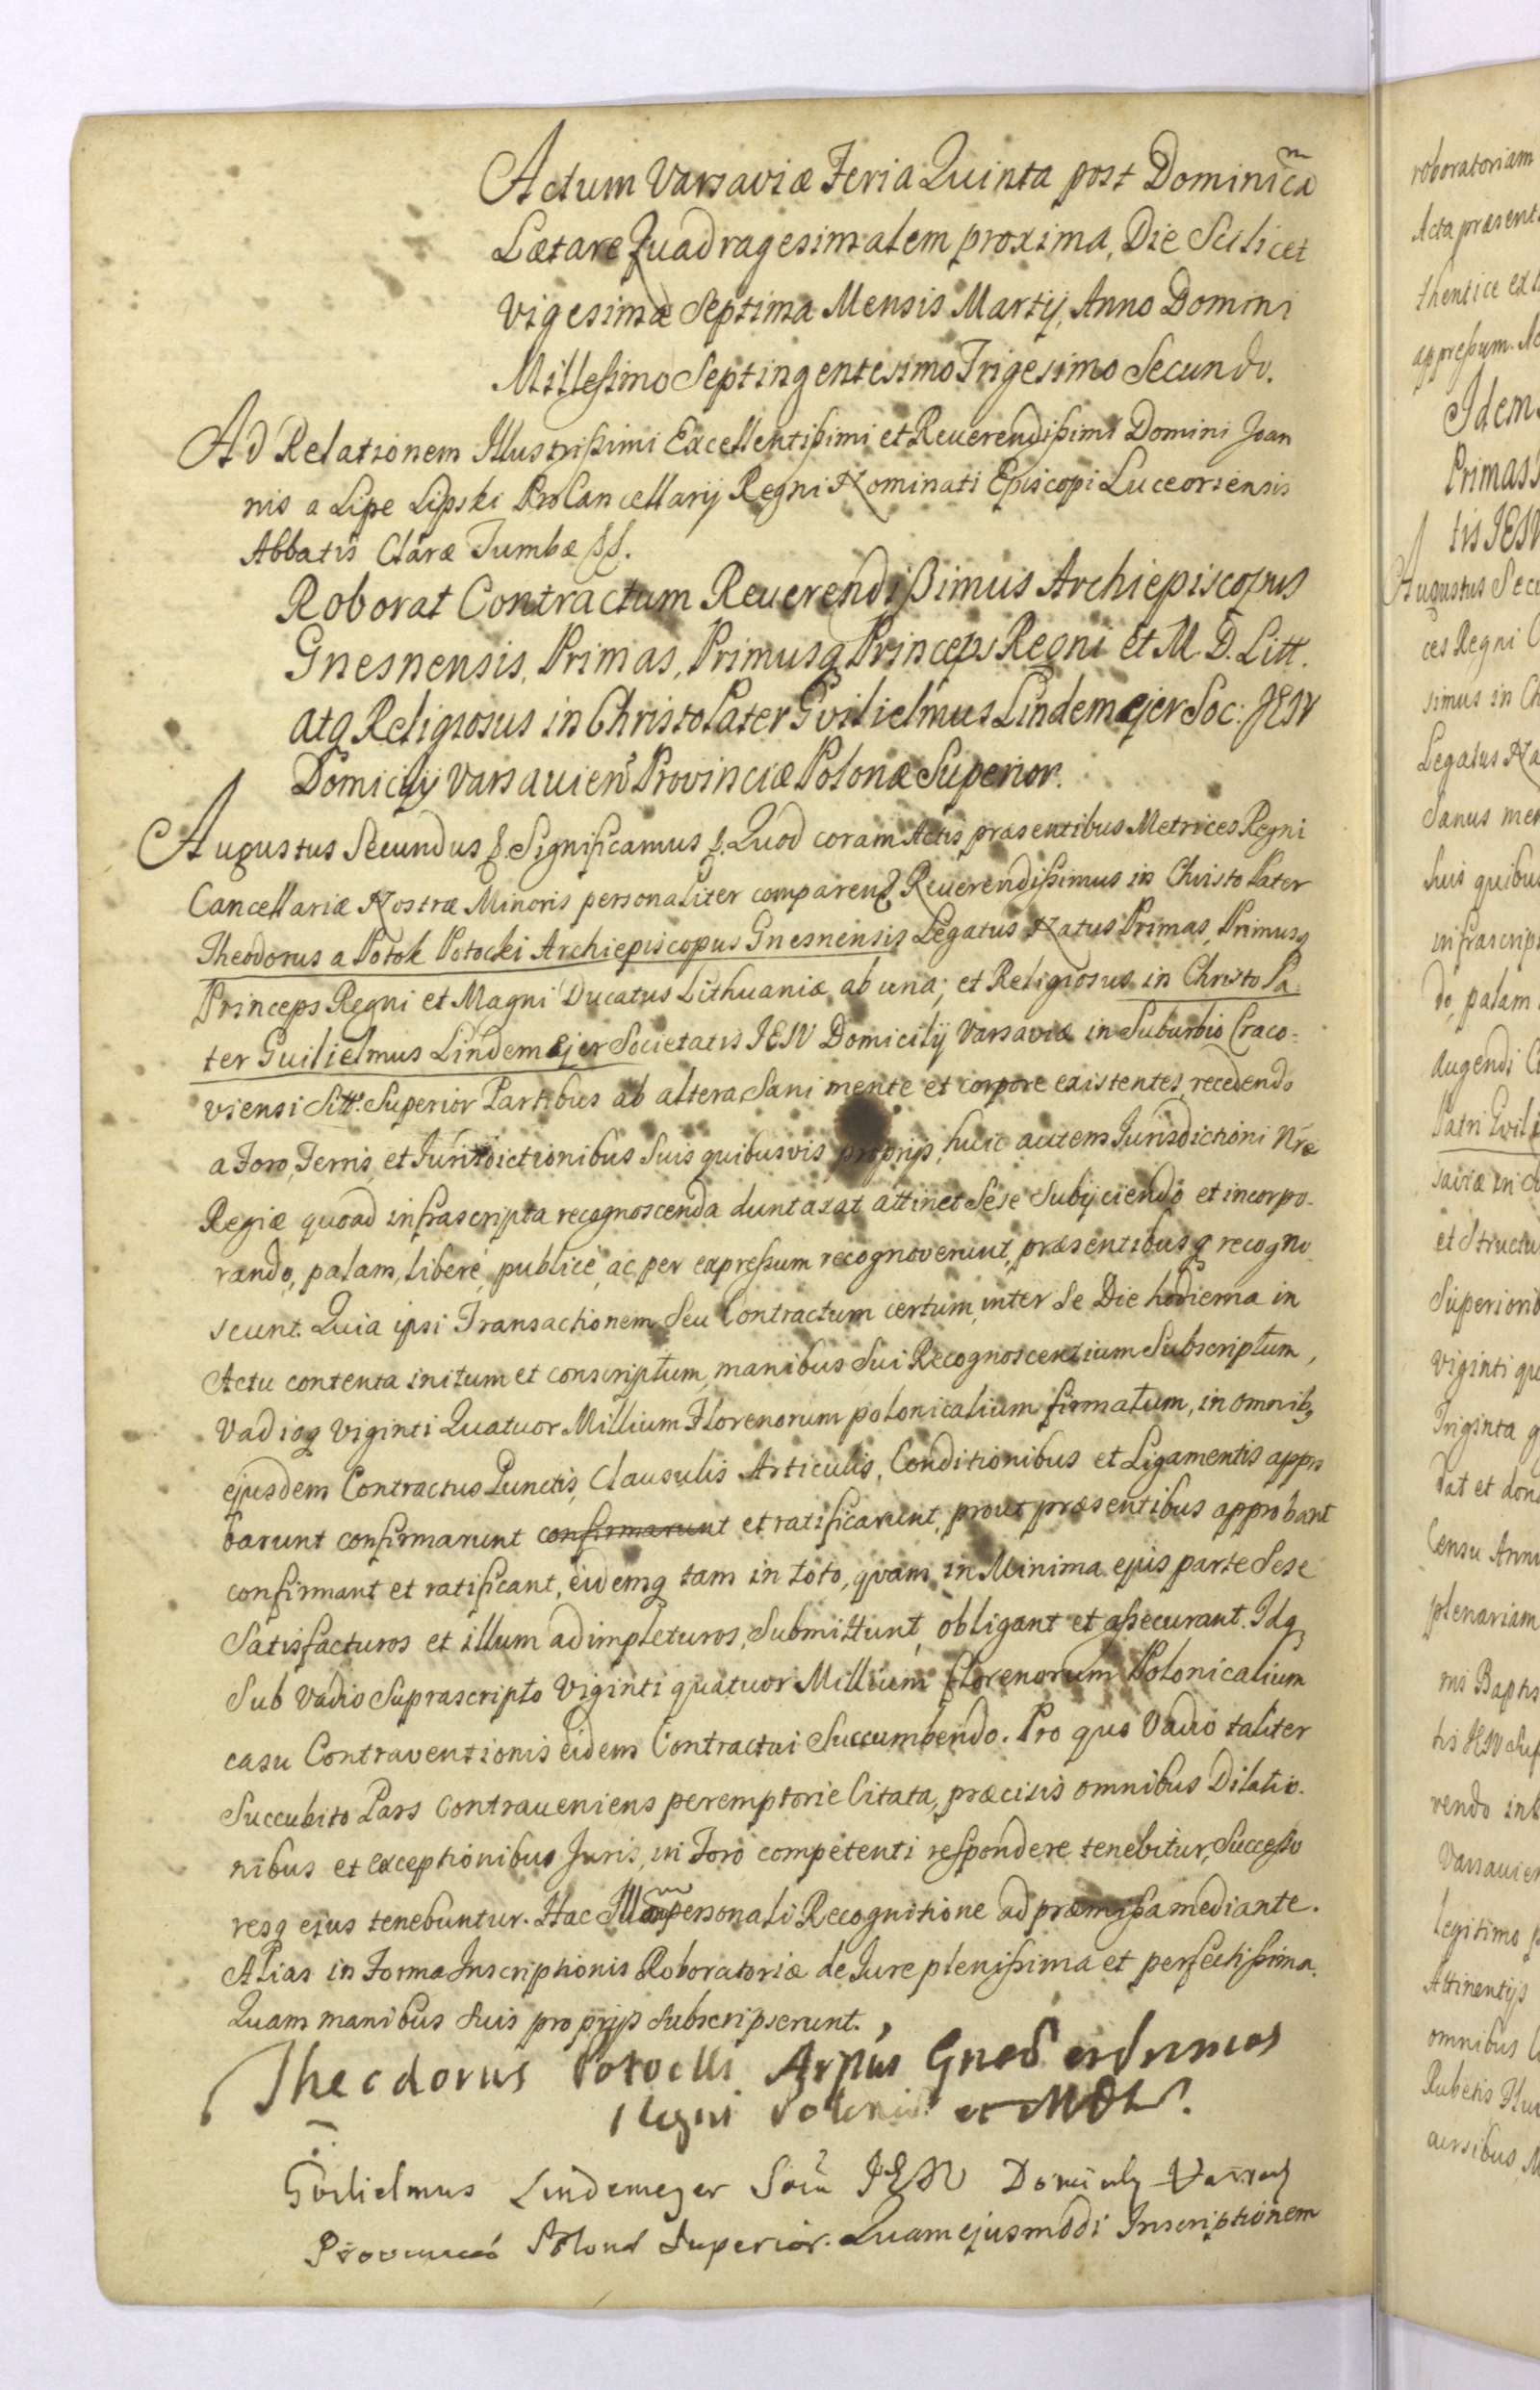 Actum Varsaviæ Feria Quinta post Dominicã
Lætare Quadragesimalem proxima, Die Scilicet
Vigesima Septima Mensis Martij, Anno Domini
Millessimo Septingentesimo Trigesimo Secundo.
Ad Relationem Illustrissimi Excellentissimi et Reuerendissimi Domini Joan
nis a Lipe Lipski ProCancellarij Regni Nominati Episcopi Luceoriensis
Abbatis Claræ Tumbæ SS.
Roborat Contractum Reuerendissimus Archiepiscopus
Gnesnensis, Primas, Primusq Princeps Regni et M. D. Litt.
atq Religiosus in Christo Pater Gvilielmus Lindemejer Soc: JESV
Domicilij Varsauien Provinciæ Polonæ Superior.
Augustus Secundus &. Significamus &. Quod coram Actis præsentibus Metrices Regni
Cancellariæ Nostræ Minoris personaliter comparen Reuerendissimus in Christo Pater
Theodorus a Potok Potocki Archiepiscopus Gnesnensis Legatus Natus Primas, Primusq
Princeps Regni et Magni Ducatus Lithuaniæ, ab una, et Religiosus in Christo Pa
ter Guilielmus Lindemejer Societatis JESV Domicilij Varsaviæ in Suburbio Craco-
viensi Sitti Superior Partibus ab altera, Sani mente et corpore existentes, recedendo
a Foro, Terris, et Jurisdictionibus Suis quibusvis proprijs, huic autem Jurisdictioni Nræ
Regiæ quoad infrascripta recognoscenda duntaxat attinet Sese Subijciendo et incorpo-
rando, palam, libere, publice, ac per expressum recognoverunt, præsentibusq recogno
scunt. Quia ipsi Transactionem Seu Contractum certum, inter Se Die hodierna in
Actu contenta initum et conscriptum, manibus Sui Recognoscentium Subscriptum,
Vadioq Viginti Quatuor Millium Florenorum polonicalium firmatum, in omnibq
ejusdem Contractus Punctis, Clausulis Articulis, Conditionibus et Ligamentis appro
barunt confirmarunt confirmarunt et ratificarunt, prout præsentibus approbant
confirmant et ratificant, eidemq tam in toto, quam in Minima ejus parte Sese
Satisfacturos et illum adimpleturos, Submittunt, obligant et assecurant. Idq
Sub Vadio Suprascripto Viginti quatuor Millium florenorum Polonicalium
casu Contraventionis eidem Contractui Succumbendo. Pro quo Vadio taliter
Succubito Pars Contraueniens peremptorie Citata, præcisis omnibus Dilatio-
nibus et exceptionibus Juris, in Foro competenti respondere tenebitur, Successo
resq ejus tenebuntur. Hac personali Recognitione ad præmissa mediante.
Alias in Forma Inscriptionis Roboratoriæ de Jure plenissima et perfectissima.
Quam manibus Suis proprijs Subscripserunt.
Theodorus Potocki Arpus Gnes
Regni Poloniæ et MDL.
Gvilielmus Lindemejer Soc JESV Domicily Varsav
Provinciæ Polonæ Superior. Quam ejusmodi Inscriptionem
roboratoriam
Acta præsent
thentice ext
appressum. Ac
Idem
Primas
tis JESV
Augustus Secu
ces Regni C
simus in Ch
Legatus Na
Sanus men
Suis quibus
infrascript
do, palam
augendi
Patri Gvil
saviæ in
et Structu
Superiorib
Viginti qu
Triginta q
dat et dona
Censu Annu
plenariam
nis Baptis
tis JESV Sup
vendo in
Varsauien
legitimo p
Attinentijs
omnibus
Rubetis Flu